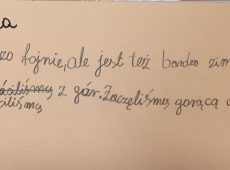 a
zo fojnie, ale jest też bardzo zim
z gór. Zaczęliśmy gorącą
ciliśmy